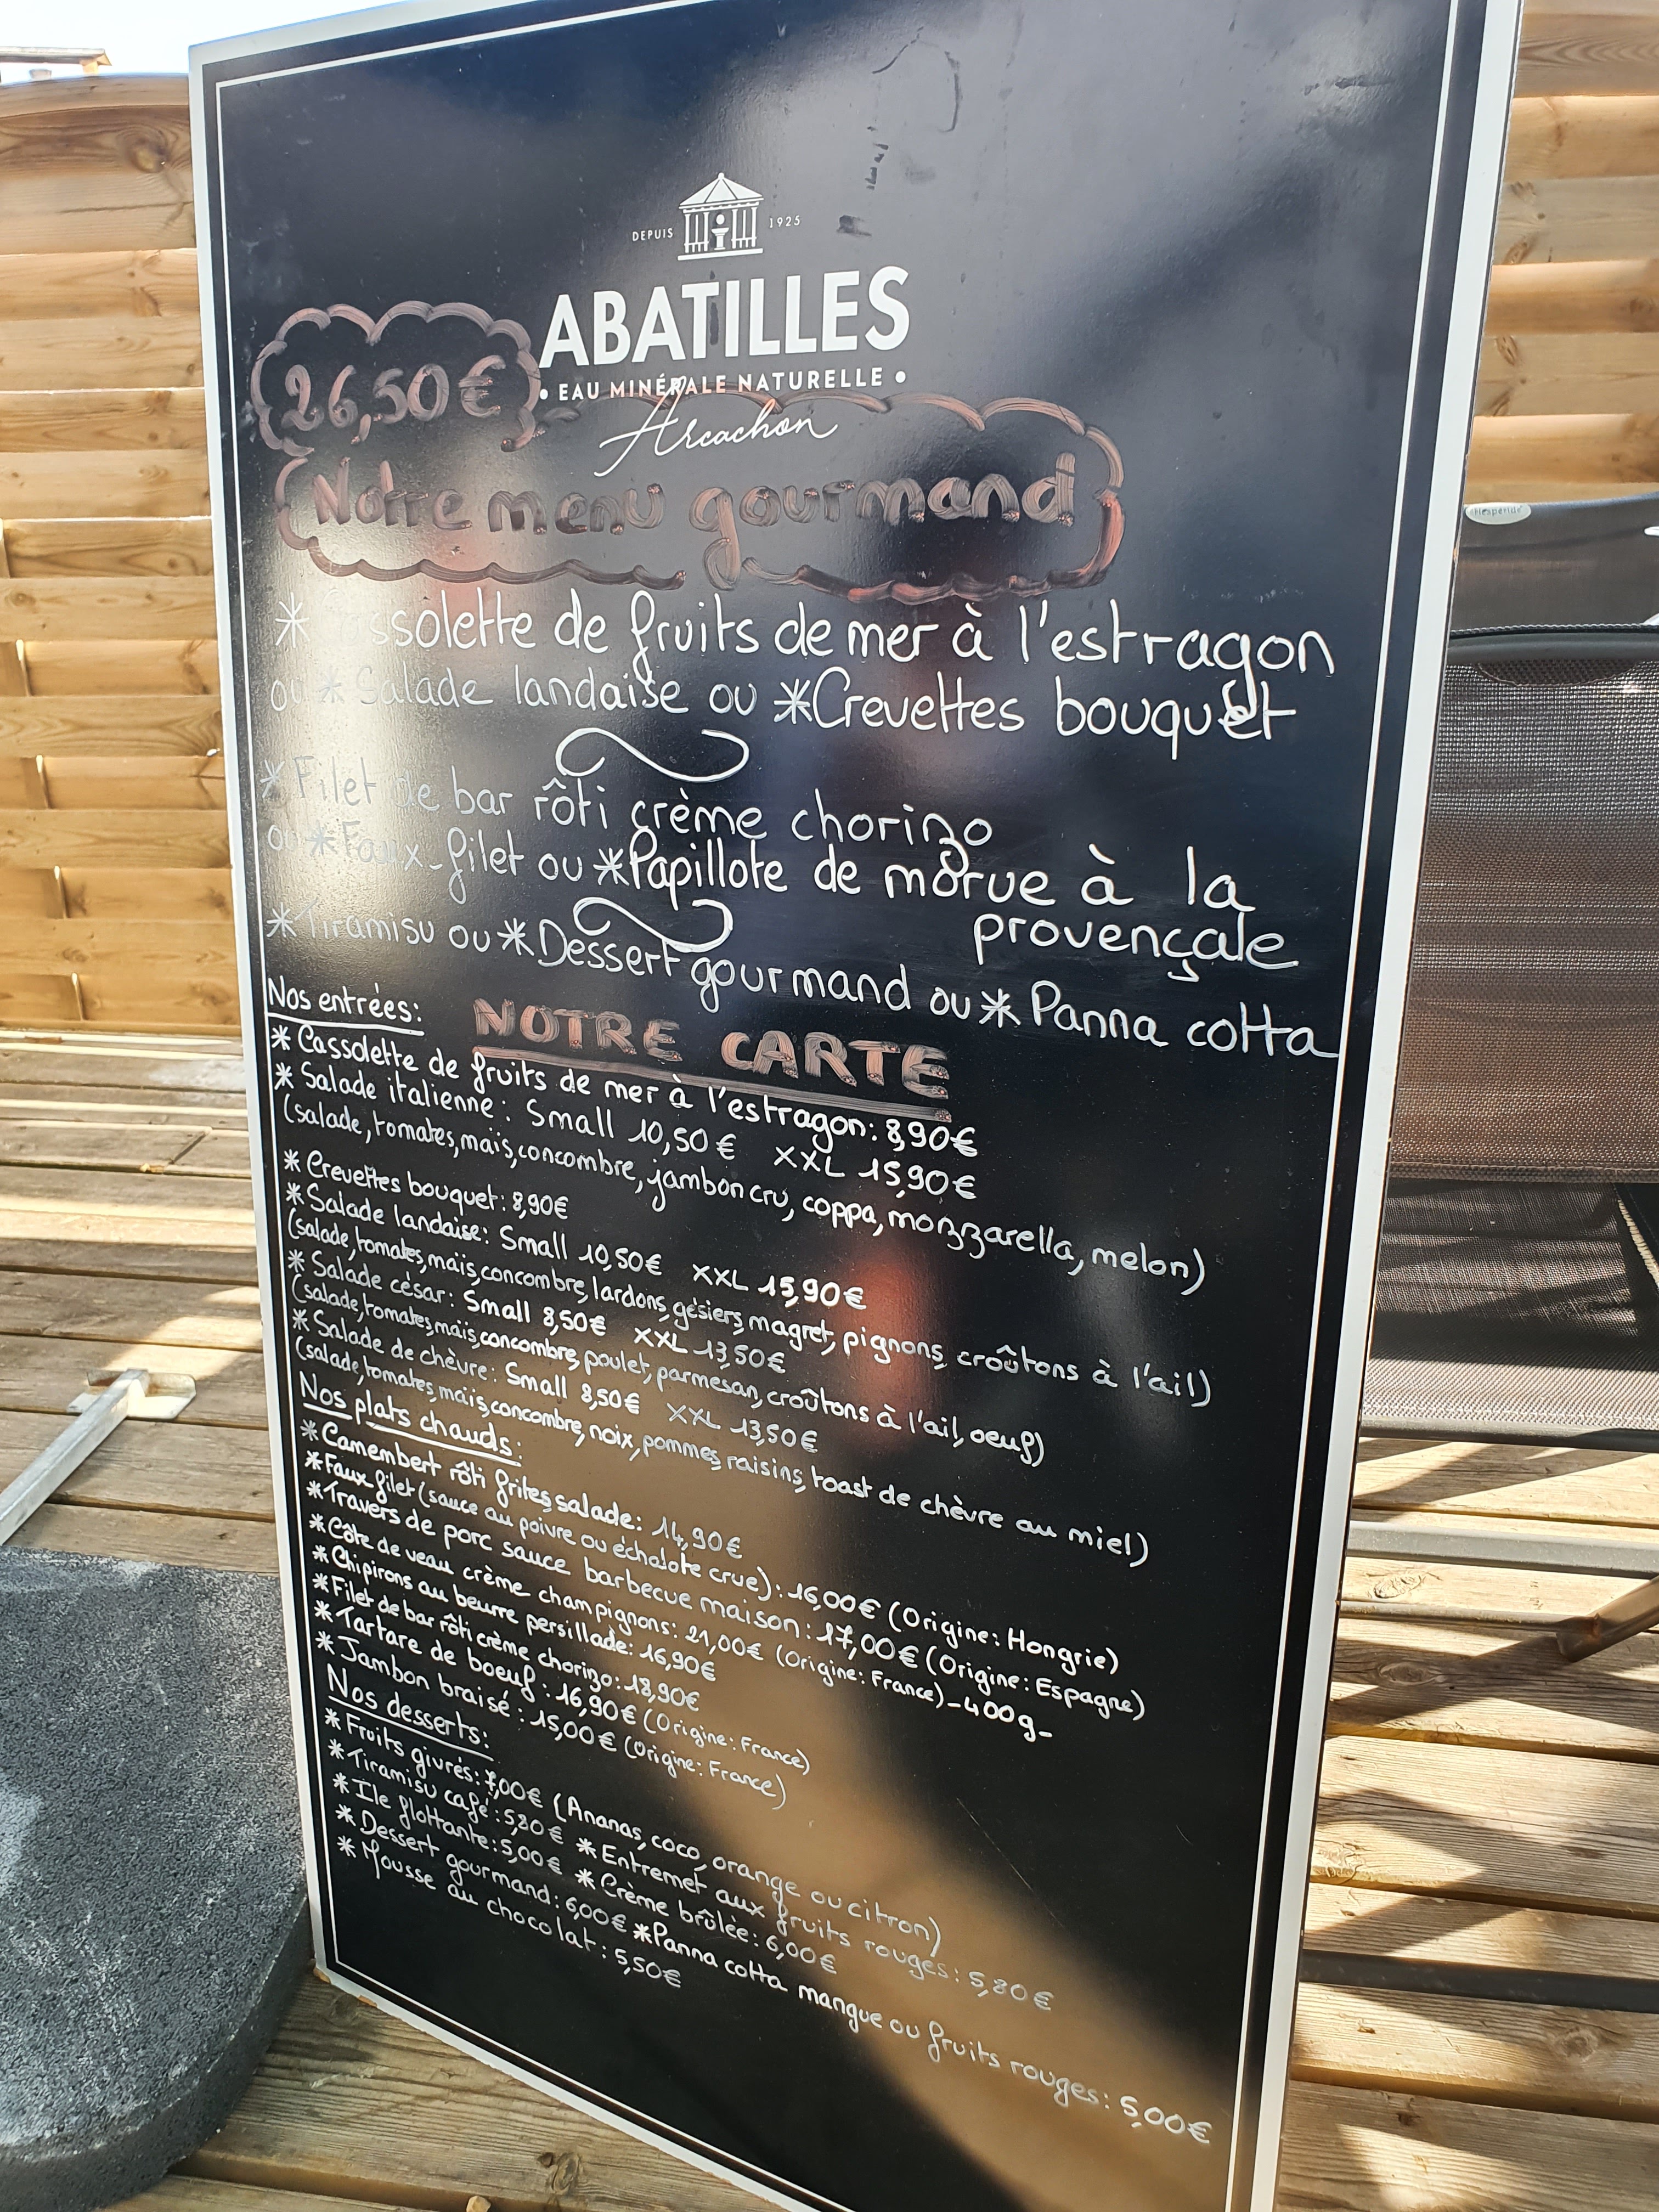 DEPUIS 1925
ABATILLES
• EAU MINÉRALE NATURELLE •
Arcachon
26,50€
Notre menu gourmand
* Cassolette de fruits de mer à l'estragon
ou * Salade landaise ou *Crevettes bouquet
* Filet de bar rôti crème chorizo
ou * Faux-filet ou *Papillote de morue à la
provençale
* Tiramisu ou * Dessert gourmand ou * Panna cotta
NOTRE CARTE
Nos entrées:
* Cassolette de fruits de mer à l'estragon: 8,90€
* Salade italienne: Small 10,50€ XXL 15,90€
(salade, tomates, maïs, concombre, jambon cru, coppa, mozzarella, melon)
* Crevettes bouquet: 8,90€
* Salade landaise: Small 10,50€ XXL 15,90€
(salade, tomates, maïs, concombre, lardons, gésiers, magret, pignons, croûtons à l'ail)
* Salade césar: Small 8,50€ XXL 13,50€
(salade, tomates, maïs, concombre, poulet, parmesan, croûtons à l'ail, oeuf)
* Salade de chèvre: Small 8,50€ XXL 13,50€
(salade, tomates, maïs, concombre, noix, pommes, raisins, toast de chèvre au miel)
Nos plats chauds:
* Camembert rôti frites, salade: 14,90€
* Faux filet (sauce au poivre ou échalote crue): 16,00€ (Origine: Hongrie)
* Travers de porc sauce barbecue maison: 17,00€ (Origine: Espagne)
* Côte de veau crème champignons: 21,00€ (Origine: France) - 400g -
* Chipirons au beurre persillade: 16,90€
* Filet de bar rôti crème chorizo: 18,90€
* Tartare de boeuf: 16,90€ (Origine: France)
* Jambon braisé: 15,00€ (Origine: France)
Nos desserts:
* Fruits givrés: 7,00€ (Ananas, coco, orange ou citron)
* Tiramisu café: 5,80€ * Entremet aux fruits rouges: 5,80€
* Ile flottante: 5,00€ * Crème brûlée: 6,00€
* Dessert gourmand: 6,00€ * Panna cotta mangue ou fruits rouges: 5,00€
* Mousse au chocolat: 5,50€
Hespéride